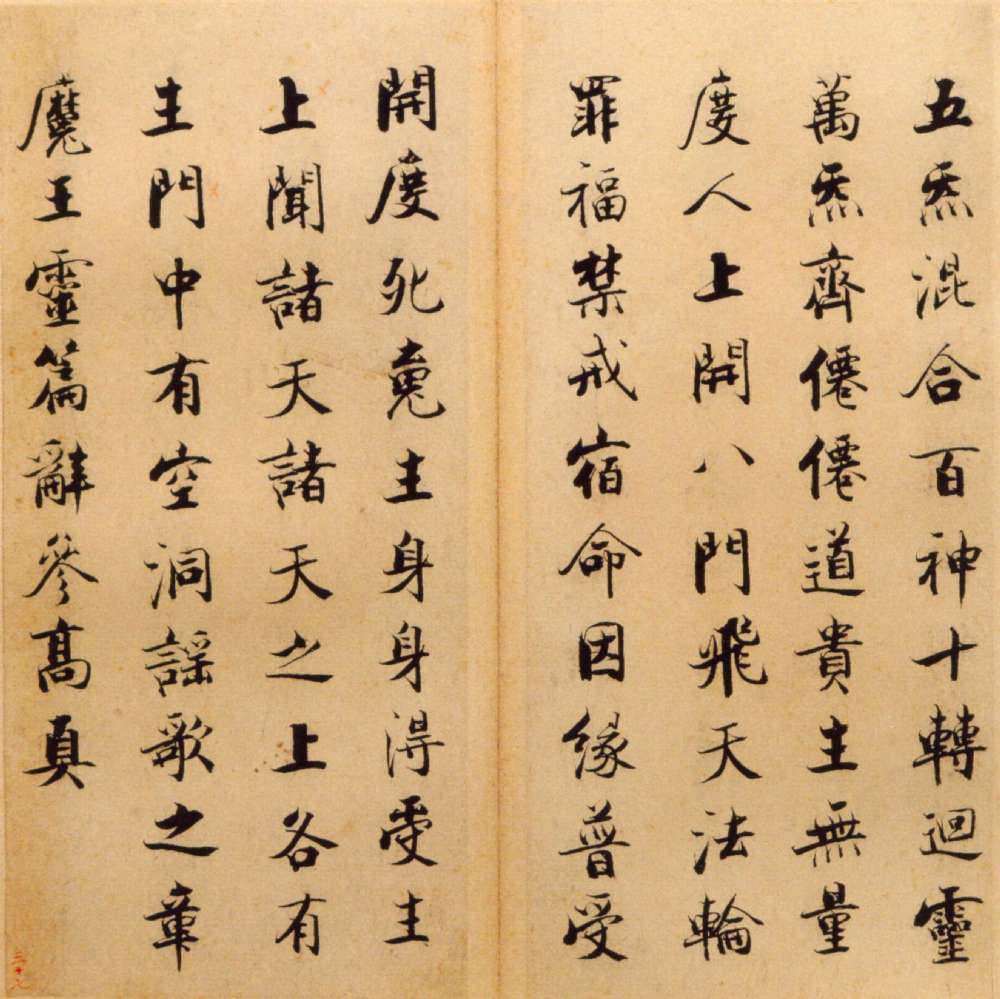 五炁混合百神十轉迴靈
萬炁齊僊僊道貴生無量
度人上開八門飛天法輪
罪福禁戒宿命因緣普受
開度死魂生身身得受生
上聞諸天諸天之上各有
生門中有空洞謠歌之章
魔王靈篇辭參高真
三十九